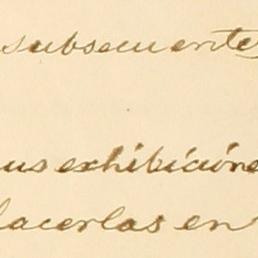 subsecuente
us exhibicione
lacerlas en